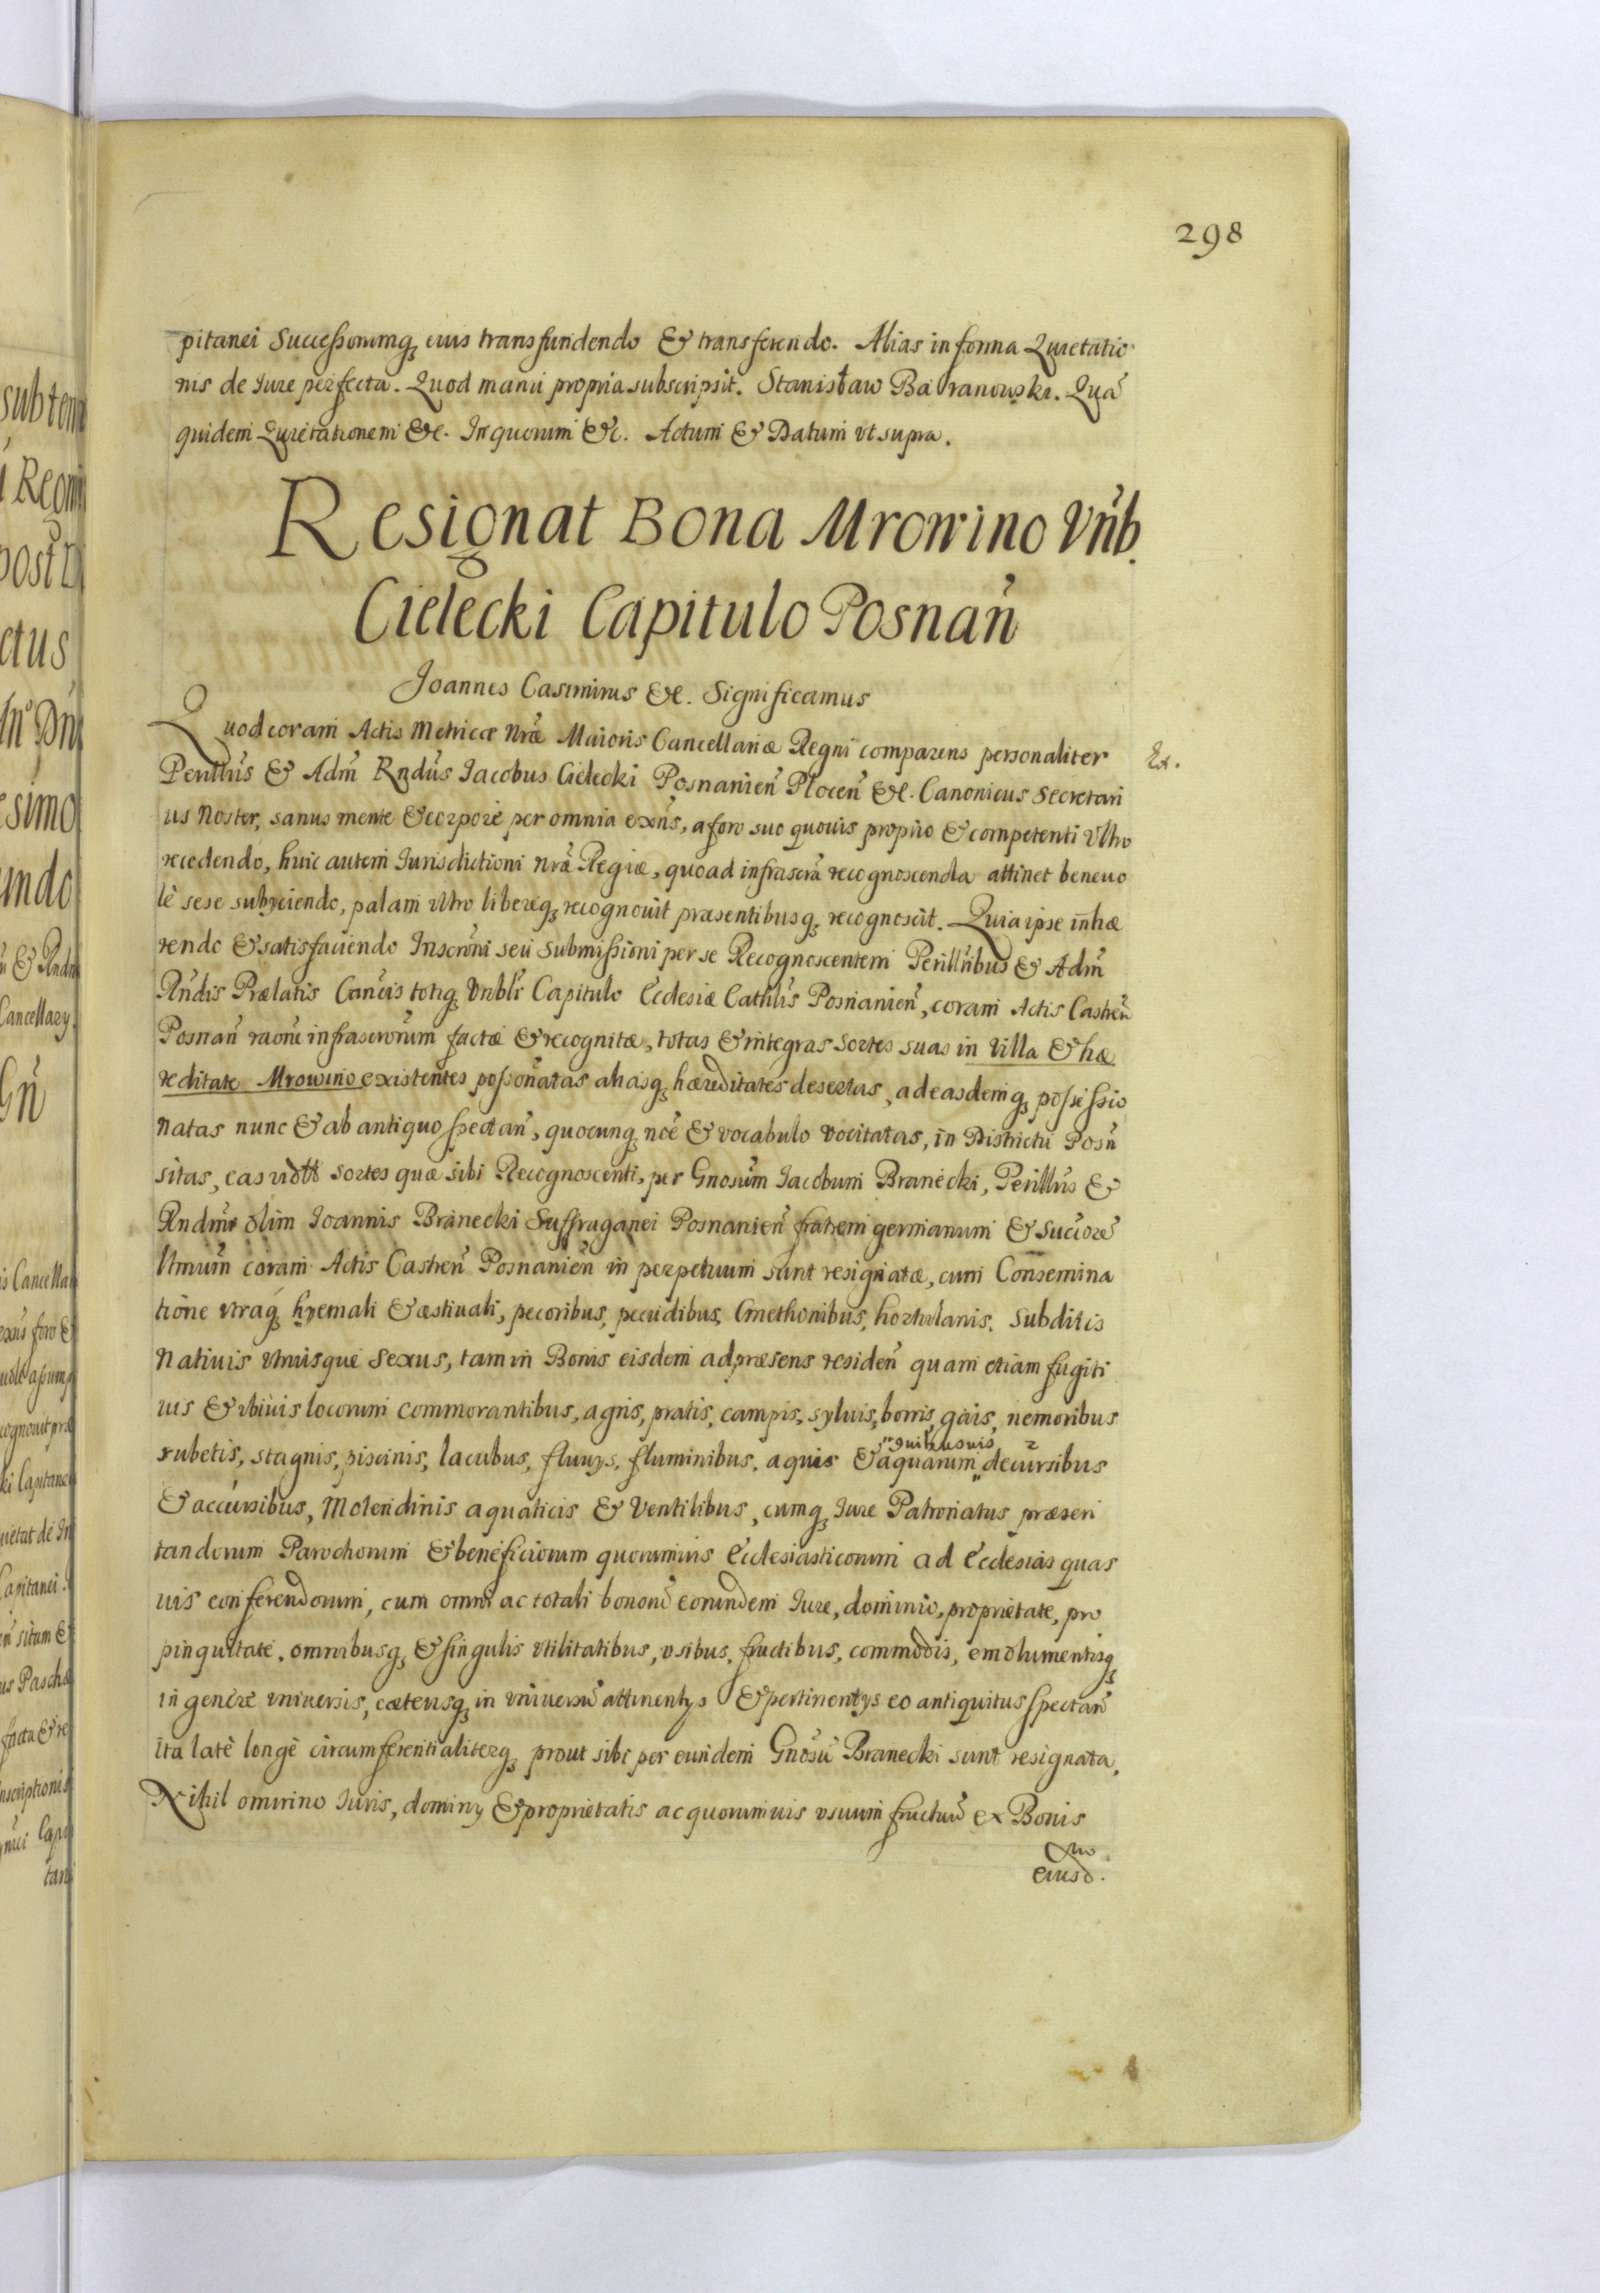 298
pitanei Successorumq, eius transfundendo & transferendo. Alias in forma Quietatio
nis de Jure perfecta. Quod manu propria subscripsit. Stanisław Baranowski. Quã
quidem Quietationem &c. In quorum &c. Actum & Datum vt supra.
Resignat Bona Mrowino Vñb.
Cielecki Capitulo Posnañ
Joannes Casimirus &c. Significamus
Quod coram Actis Metricæ Nræ Maioris Cancellariæ Regni comparens personaliter
Ex.
Perillũs & Adm̃ Rndũs Jacobus Cielecki Posnanieñ Ploceñ &c. Canonicus Secretari
us Noster, sanus mente & corpore per omnia exñs, a foro suo quouis proprio & competenti vltro
recedendo, huic autem Jurisdictioni nræ Regiæ, quoad infrascrã recognoscenda attinet beneuo
lè sese subyciendo, palam vltro libereq, recognouit præsentibusq, recognoscit. Quia ipse inhæ
rendo & satisfaciendo Inscrñi seu submissioni per se Recognoscentem Perillñibus & Adm̃
Rñdis Prælatis Cañcis totiq, Vnbli Capitulo Ecclesiæ Cathlis Posnanieñ, coram Actis Castreñ
Posnañ raõne infrascrorũm factæ & recognitæ, totas & integras sortes suas in Villa & hæ
reditate Mrowino existentes possonatas aliasq, hæreditates desertas, ad easdemq, possessio
natas nunc & ab antiquo spectañ, quocunq, noẽ & vocabulo vocitatas, in Districtu Posñ
sitas, eas vidtt sortes quæ sibi Recognoscenti, per Gnosũm Jacobum Branecki, Perillũs &
Rndmi olim Joannis Branecki Suffraganei Posnanieñ fratrem germanum & succorẽ
Vnicũm coram Actis Castreñ Posnanieñ in perpetuum sunt resignatæ, cum Consemina
tione vtraq, hyemali & æstiuali, pecoribus, pecudibus, Cmethonibus, hortulanis, subditis
Natiuis vtriusque sexus, tam in Bonis eisdem ad præsens resideñ quam etiam fugiti
uis & vbiuis locorum commorantibus, agris, pratis, campis, syluis, borris, gais, nemoribus
quibusuis
rubetis, stagnis, piscinis, lacubus, fluuys, fluminibus, aquis & aquarum decursibus
& accursibus, Molendinis aquaticis & Ventilibus, cumq, Jure Patronatus præsen
tandorum Parochorum & beneficiorum quorumuis Ecclesiasticorum ad Ecclesias quas
uis conferendorum, cum omni ac totali bonorũ eorundem Jure, dominio, proprietate, pro
pinquitate, omnibusq, & singulis vtilitatibus, vsibus, fructibus, commodis, emolumentisq,
in genere vniuersis, cæterisq, in vniuersũ attinentys & pertinentys eo antiquitus spectañ
ita latè longè circumferentialiterq, prout sibi per eundem Gnosũ Branecki sunt resignata.
Nihil omnino Juris, dominy & proprietatis ac quorumuis vsuum fructuũ ex Bonis
eiusd.